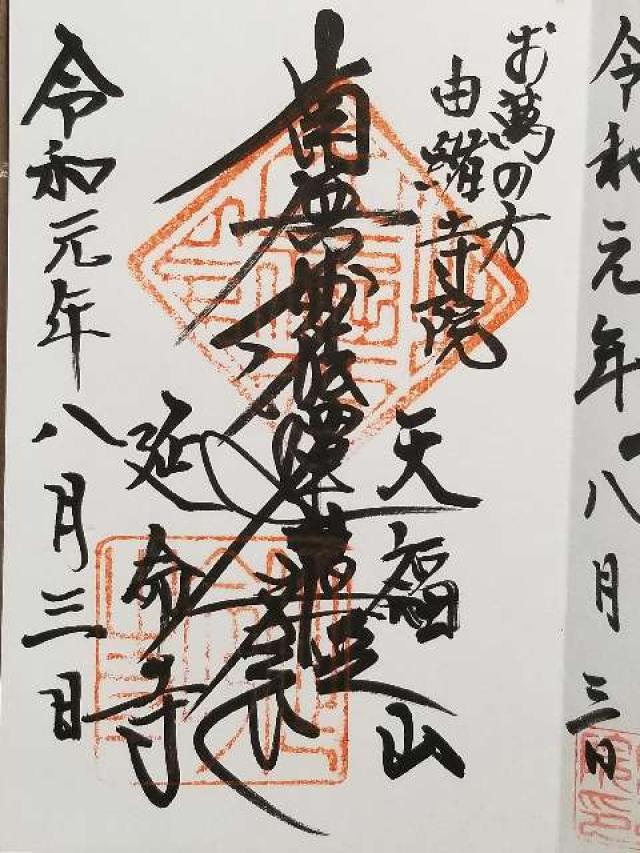 令和元年八月三日
お萬の方
由緒寺院
天福山
南無妙法蓮華経
延命寺
令和元年八月三日